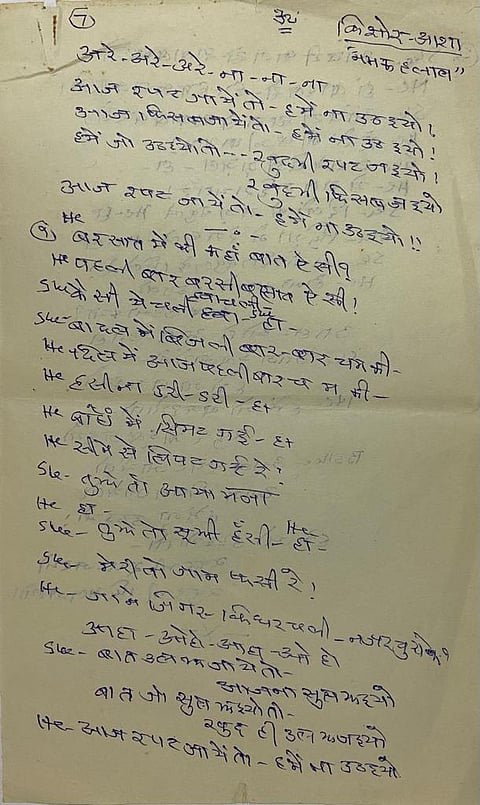 7 किशोर-आशा
"नमक हलाल"
अरे-अरे-अरे-ना-ना-ना
आज रपट जायें तो-हमें ना उठइयो!
आज फिसल जायें तो-हमें ना उठइयो!
हमें जो उठइयो तो--खुद भी रपट जइयो!
खुद भी फिसल जइयो
आज रपट जायें तो-हमें ना उठइयो!!
१ He बरसात में थी कहाँ बात ऐसी?
He पहली बार बरसी बरसात ऐसी!
She कैसी ये चली हवा She हाँ-
She- बादल में बिजली बार-बार चमकी-
He दिल में आज पहली बार चमकी-
He हसीना डरी-डरी-हाँ
He बाँहों में सिमट गई-हाँ
He सीने से लिपट गई रे!
She- तुझे तो आया मजा
He हाँ-
She- तुझे तो सूझी हँसी- He हाँ-
She- मेरी तो जान फंसी रे!
He- जाने जिगर किधर चली-नजर चुरा के?
आहा-ओहो-आहा-ओहो
She- बात उलझ जाये तो-
आज ना सुलझइयो
बात जो सुलझइयो तो-
खुद ही उलझ जइयो
He- आज रपट जायें तो-हमें ना उठइयो